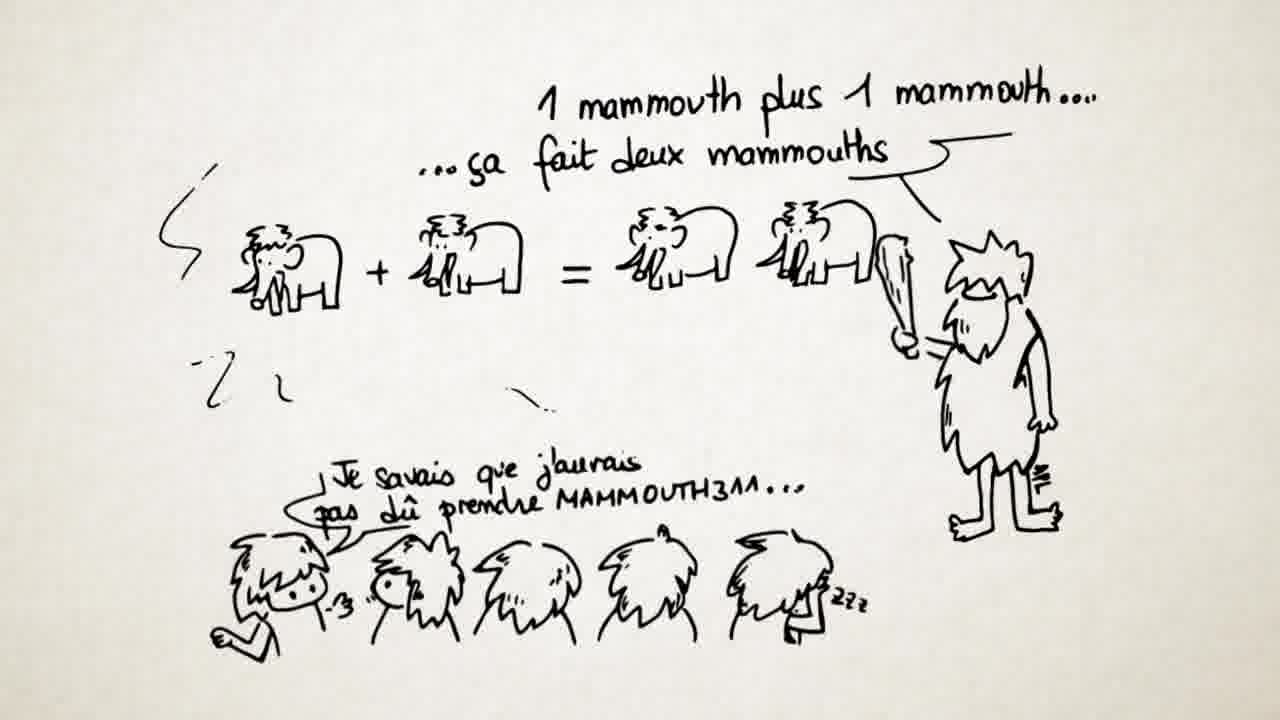 1 mammouth plus 1 mammouth....
...ça fait deux mammouths
+ =
Je savais que j'aurais
pas dû prendre MAMMOUTH311...
zzz